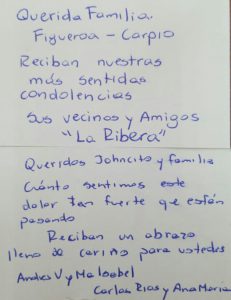 Querida Familia.
Figueroa - Carpio
Reciban nuestras
más sentidas
condolencias
Sus vecinos y Amigos
"La Ribera"
Queridos Johncito y familia
Cuánto sentimos este
dolor tan fuerte que están
pasando
Reciban un abrazo
lleno de cariño para ustedes
Andres V y Ma Isabel
Carlos Rias y Ana Maria